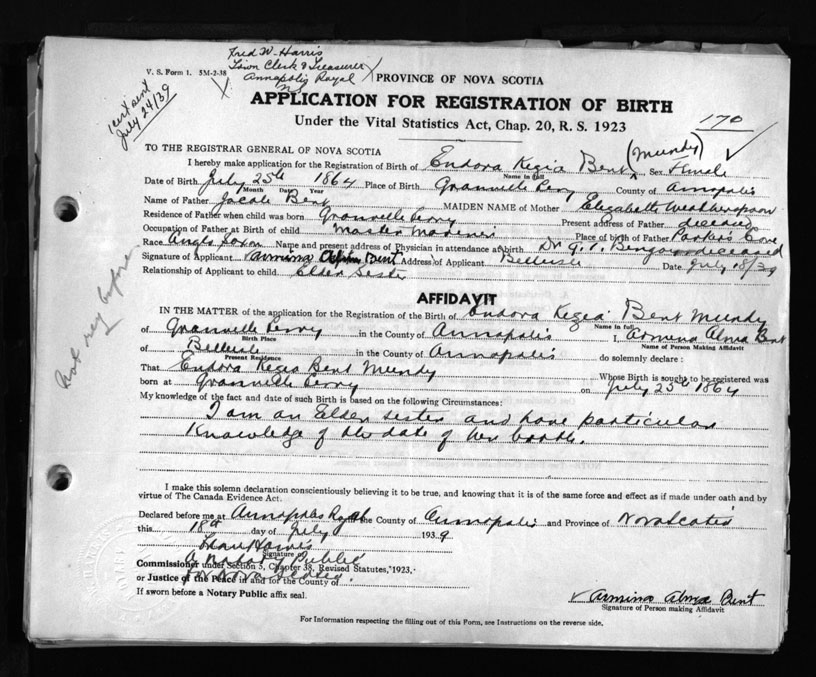 Fred W. Harris
Town Clerk & Treasurer
Annapolis Royal
N.S.
V. S. Form 1. 5M-2-38
July 24/39
PROVINCE OF NOVA SCOTIA
APPLICATION FOR REGISTRATION OF BIRTH
170
Under the Vital Statistics Act, Chap. 20, R. S. 1923
TO THE REGISTRAR GENERAL OF NOVA SCOTIA
I hereby make application for the Registration of Birth of Endora Kezia Bent (Mundy) Sex Female
Name in full
Date of Birth July 25th 1864 Place of Birth Granville Ferry County of Annapolis
Month Date Year
Name of Father Jacob Bent MAIDEN NAME of Mother Elizabeth
Residence of Father when child was born Granville Ferry Present address of Father deceased
Occupation of Father at Birth of child Master Mariner Place of birth of Father Parkers Cove
Race Anglo Saxon Name and present address of Physician in attendance at birth Dr. deceased
Signature of Applicant Armina Bent Address of Applicant Belleisle Date July 18/39
Relationship of Applicant to child Elder Sister
AFFIDAVIT
IN THE MATTER of the application for the Registration of the Birth of Endora Kezia Bent Mundy
Name in full
of Granville Ferry in the County of Annapolis I, Armina Alma Bent
Birth Place
Name of Person Making Affidavit
of Belleisle in the County of Annapolis do solemnly declare :
Present Residence
That Endora Kezia Bent Mundy Whose Birth is sought to be registered was
born at Granville Ferry on July 25th 1864
My knowledge of the fact and date of such Birth is based on the following Circumstances:
I am an Elder sister and have particular
Knowledge of the date of her birth.
Not reg before
I make this solemn declaration conscientiously believing it to be true, and knowing that it is of the same force and effect as if made under oath and by
virtue of The Canada Evidence Act.
Declared before me at Annapolis Royal in the County of Annapolis and Province of Nova Scotia
this 18th day of July 1939
Signature
A Notary Public
Commissioner under Section 5, Chapter 38, Revised Statutes, 1923,
for Nova Scotia.
or Justice of the Peace in and for the County of
If sworn before a Notary Public affix seal.
Armina Alma Bent
Signature of Person making Affidavit
For Information respecting the filling out of this Form, see Instructions on the reverse side.